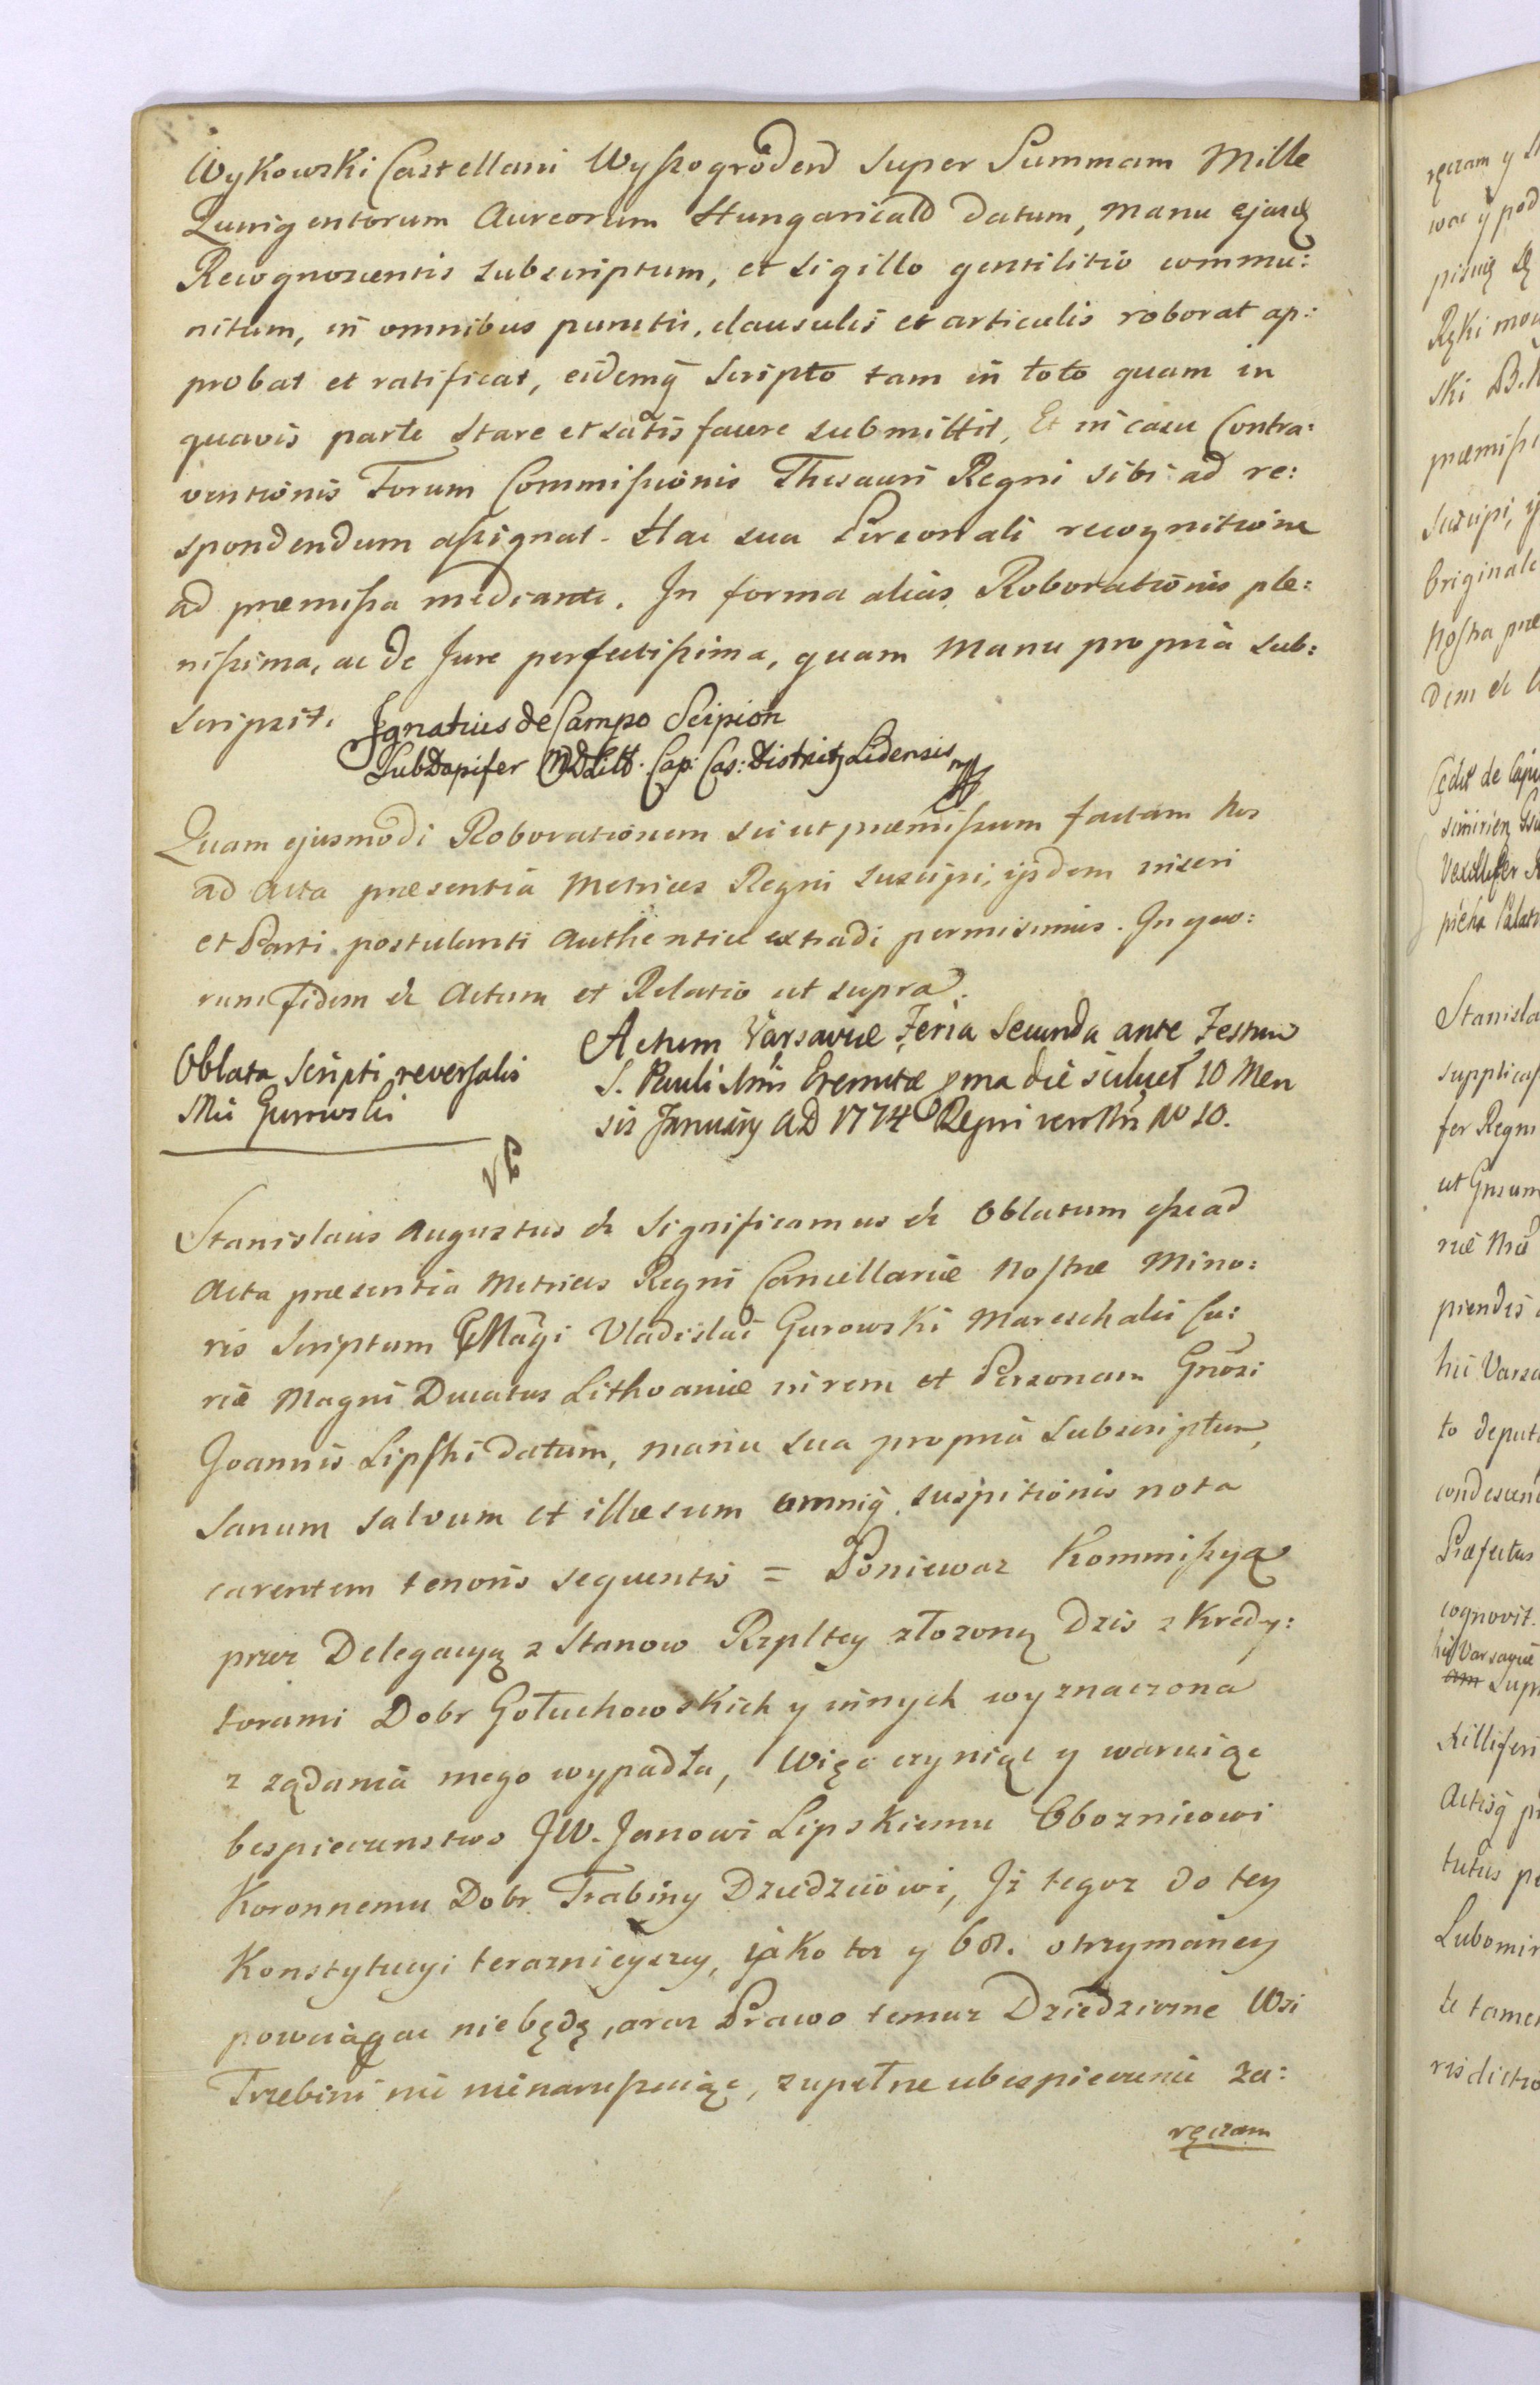 Wykowski Castellani Wyszogrōden̄ super Summam Mille
Quingentorum Aureorum Hungaricald datum, manu ejusd
Recognoscentis subscriptum, et sigillo gentilitio commu:
nitum, in omnibus punctis, clausulis et articulis roborat ap:
probat et ratificat, eidemq̄ scripto tam in toto quam in
quavis parte stare et satis facere submittit, Et in casu Contra:
ventionis Forum Commissionis Thesauri Regni sibi ad re:
spondendum assignat. Hac sua Personali recognitione
ad præmissa mediante. In forma alias Roborationis ple:
nissima, ac de Jure perfectissima, quam Manu propria sub:
scripsit. Ignatius de Campo Scipion
SubDapifer MDLitt. Cap: Cas: Districtq Lidensis mp
Quam ejusmodi Roborationem sicut præmissum factam Nos
ad Acta præsentia Metrices Regni suscipi, ijsdem inseri
et Parti postulanti Authentice extradi permisimus. In quo:
rum fidem &c Actum et Relatio ut supra.
Oblata Scripti reversalis
Mci Gurowski
Actum Varsaviæ Feria Secunda ante Festum
S. Pauli Imi Eremitæ pma die scilicet 10 Men
sis January AD 1774 Regni vero Nri No 10.
Stanislaus Augustus &c Significamus &c Oblatum esse ad
Acta præsentia Metrices Regni Cancellariæ Nostræ Mino:
ris Scriptum GMagci Vladislai Gurowski Mareschalci Cu:
riæ Magni Ducatus Lithvaniæ in rem et Personam Gnōsi
Joannis Lipski datum, manu sua propria Subscriptum,
Sanum salvum et illæsum omniq̄ suspitionis nota
carentem tenoris sequentis = Poniewaz Kommissya
przez Delegacyą z Stanow Rzpltey złozoną Dzis z Kredy:
torami Dobr Gołuchowskich y innych wyznaczona
z ządania mego wypadła, Więc czyniąc y waruiąc
bespieczenstwo JW. Janowi Lipskiemu Oboznicowi
Koronnemu Dobr Trabiny Dziedzicowi, Jż tegoz do tey
Konstytucyi terazniejszey, jako tez y 68. otrzymaney
powciągac nie będę, oraz Prawo temuz Dziedziczne Wsi
Trzebini nie nienaruszaiąc, zupełne ubespieczenie za:
ręczam